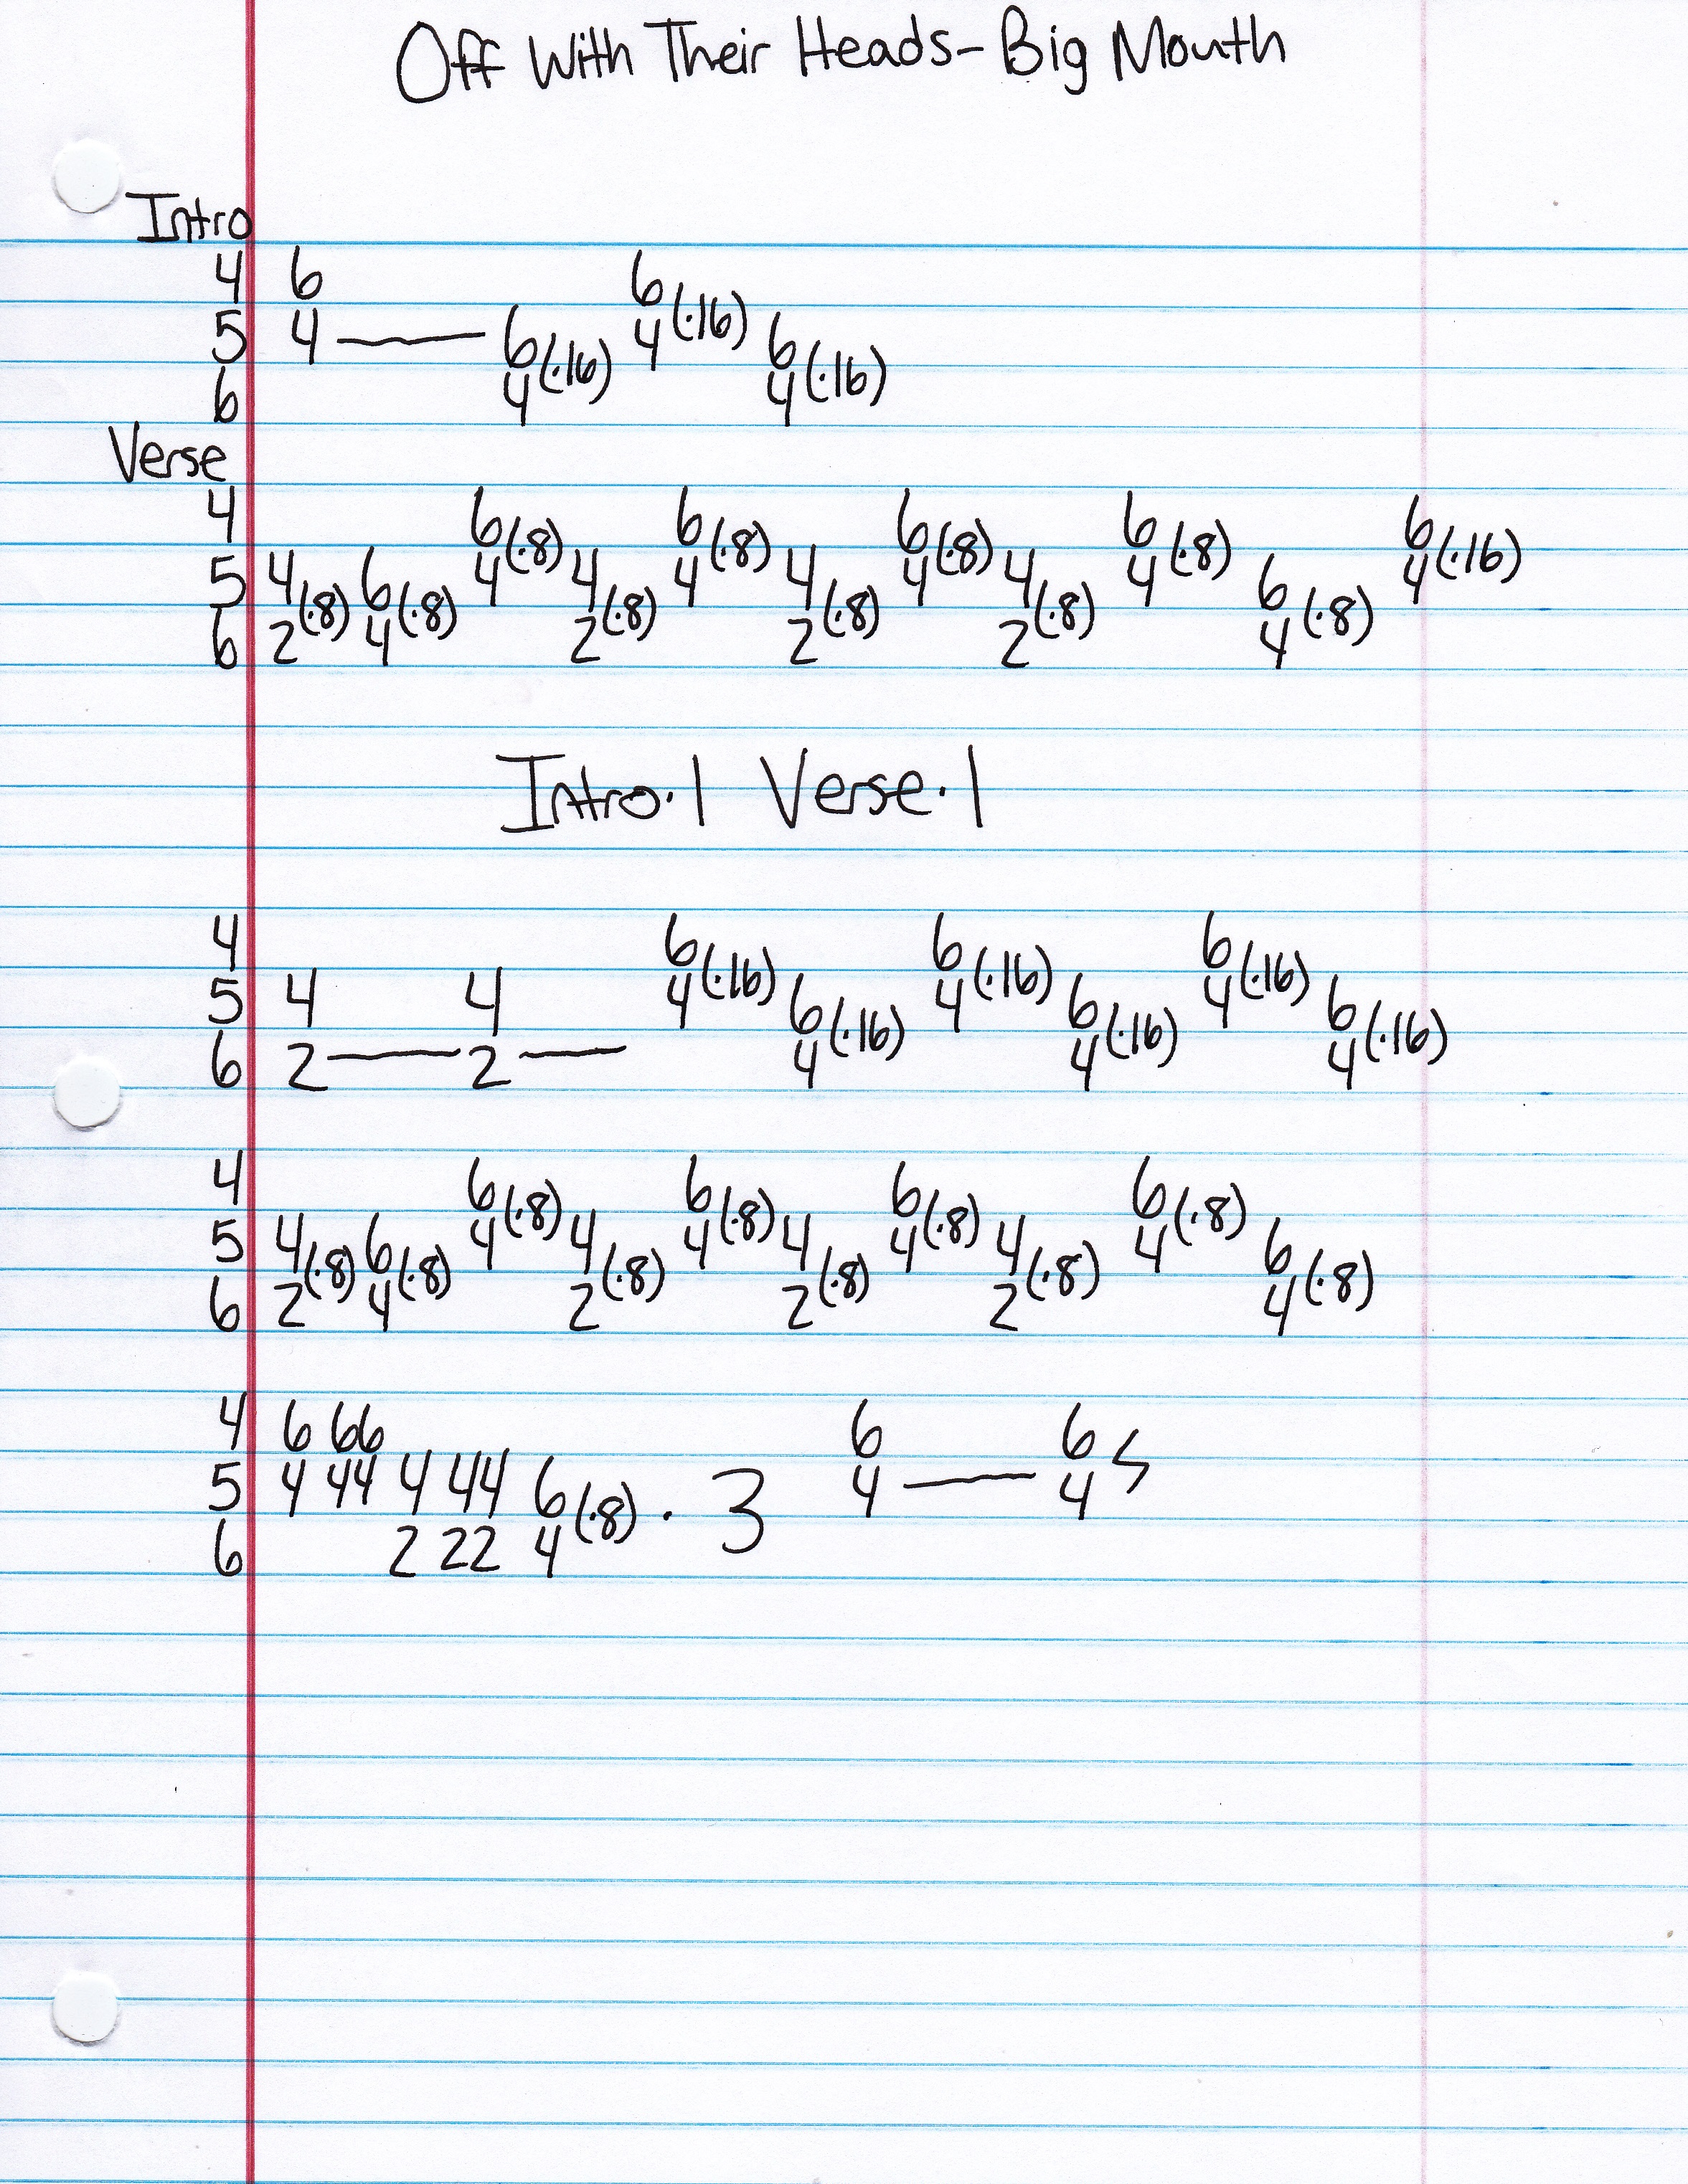 Off With Their Heads- Big Mouth
Intro
4 6 6
5 4 — 6(·16) 4(·16) 6(·16)
6 4 4
Verse
4 6(·8) 6(·8) 6(·8) 6(·8) 6(·16)
5 4(·8) 6(·8) 4 4(·8) 4 4(·8) 4 4(·8) 4 6(·8) 4
6 2 4 2 2 2 4
Intro·1 Verse·1
4 6(·16) 6(·16) 6(·16)
5 4 4 4 6(·16) 4 6(·16) 4 6(·16)
6 2 — 2 — 4 4 4
4 6(·8) 6(·8) 6(·8) 6(·8)
5 4(·8) 6(·8) 4 4(·8) 4 4(·8) 4 4(·8) 4 6(·8)
6 2 4 2 2 2 4
4 6 66 6 6
5 4 44 4 44 6(·8) · 3 4 — 4
6 2 22 4